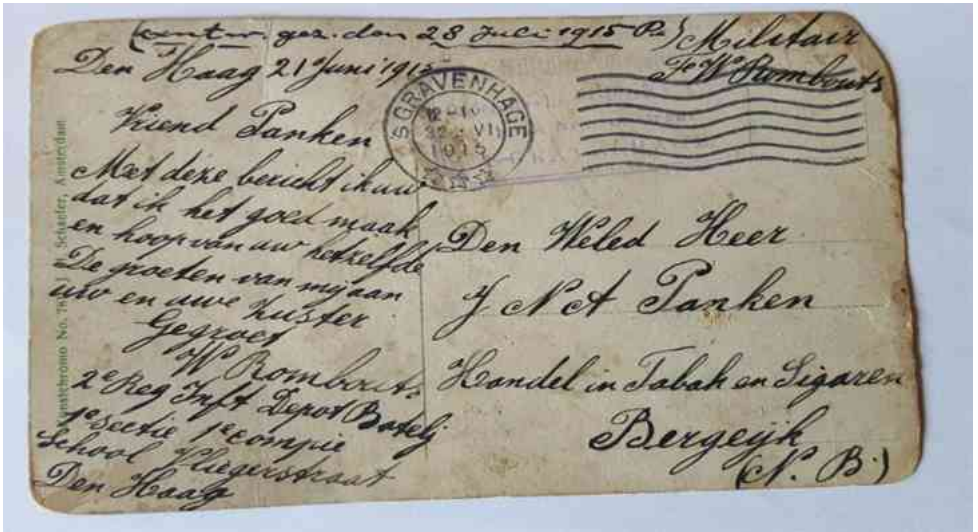 (antw. gez. den 28 Juli 1915 P.)
Militair
W Rombouts
Den Haag 21 Juni 1915
'S GRAVENHAGE
22 VI
1915
Vriend Panken
Met deze bericht ik uw
dat ik het goed maak
en hoop van uw hetzelfde
De groeten van mij aan
uw en uwe Zuster
Gegroet
W Rombouts
2e Reg Inft Depot Batelj
1e Sectie 1e compie
School Vliegerstraat
Den Haag
Den Weled Heer
J N A Panken
Handel in Tabak en Sigaren
Bergeyk
(N. B.)
Kunstchromo No. Schaefer, Amsterdam